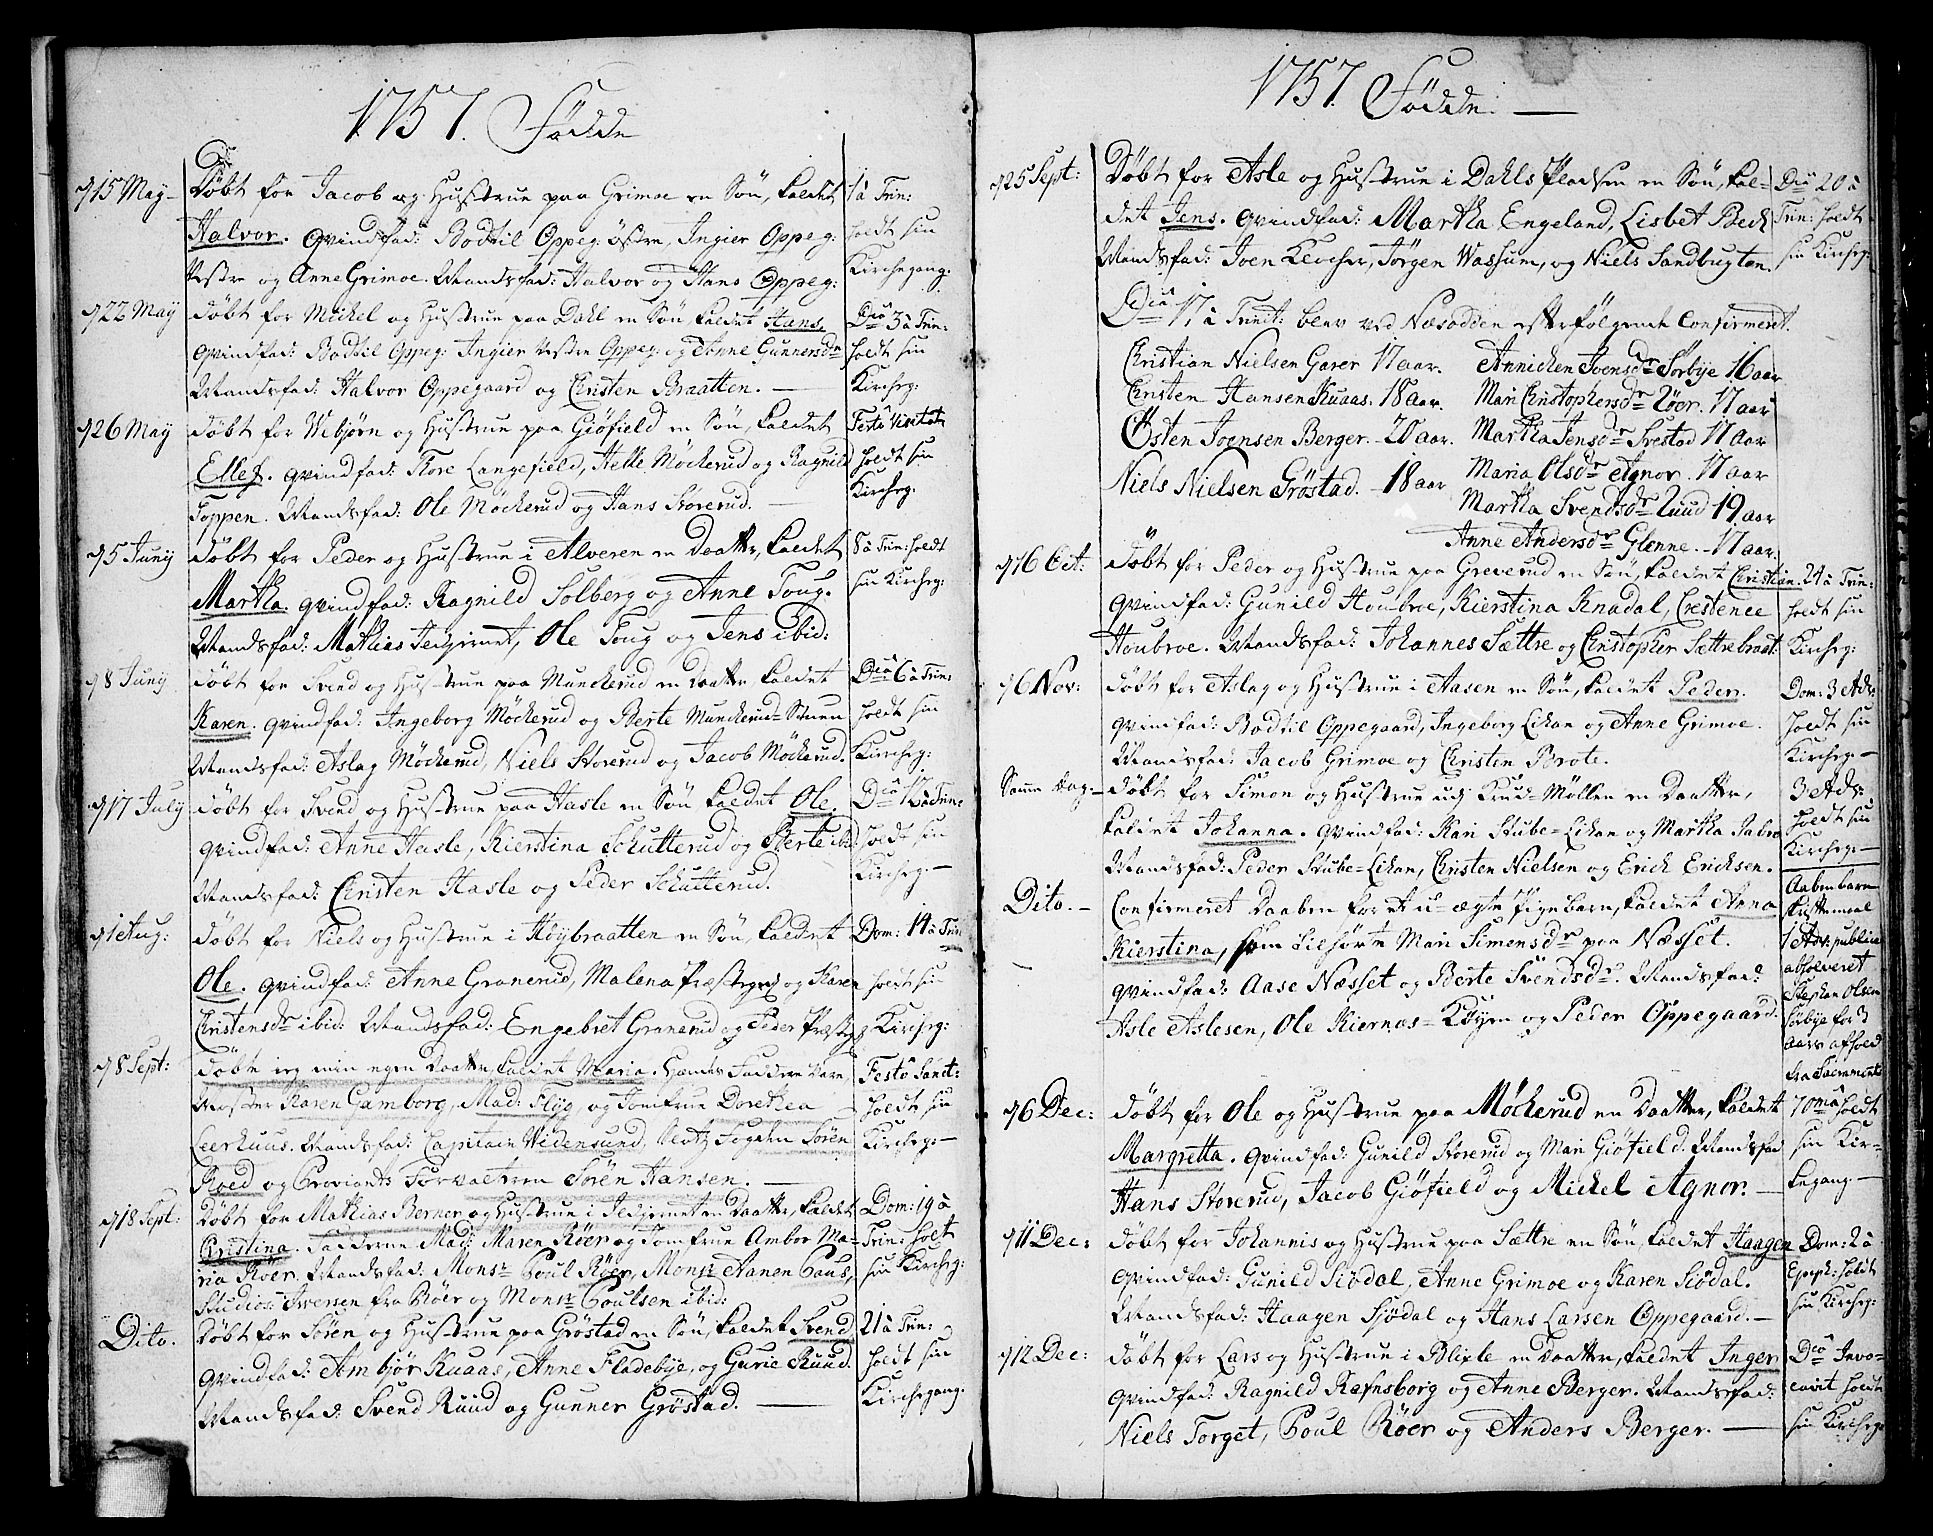 1757. Födde
d 15 May
Döbt for Jacob og Hustrue paa Grimoe en Sön, kaldet
Halvor. Qvindfad: Bodtil Oppeg: östre, Ingier Oppeg:
Vestre og Anne Grimoe. Mandsfad: Halvor og Hans Oppeg:
1 à Trin:
holdt sin
Kirchegang.
d 22 May
döbt for Michel og Hustrue paa Dahl en Sön kaldet Hans.
Qvindfad: Bodtil Oppeg: Ingier Vestre Oppeg: og Anne Gunnersdr
Mandsfad: Halvor Oppegaard og Christen Braatten.
Dca 3 à Trin:
holdt sin
Kircheg:
d 26 May
döbt for Vebjörn og Hustrue paa Giöfield en Sön, kaldet
Ellef. Qvindfad: Thore Langefield, Helle Möckerud og Ragnild
Toppen. Mandsfad: Ole Möckerud og Hans Storerud.
Festo Visitat
holdt sin
Kircheg.
d 5 Junij
döbt for Peder og Hustrue i Alveren en Daatter, kaldet
Martha. Qvindfad: Ragnild Solberg og Anne Toug.
Mandsfad: Mathias Tegjernet, Ole Toug og Jens ibid:
8 à Trin: holdt
sin Kircheg:
d 8 Junij
döbt for Svend og Hustrue paa Munckerud en Daatter kaldet
Karen. Qvindfad: Ingeborg Möckerud og Berte Munckerud-Stuen
Mandsfad: Aslag Möckerud, Niels Storerud og Jacob Möckerud.
Dca 6 à Trin:
holdt sin
Kircheg:
d 17 July
döbt for Svend og Hustrue paa Hasle en Sön kaldet Ole.
Qvindfad: Anne Hasle, Kierstina Schutterud og Berte ibid:
Mandsfad: Christen Hasle og Peder Schutterud.
Dca 12 à Trin:
holdt sin
Kircheg.
d 1 Aug:
döbt for Niels og Hustrue i Höybraatten en Sön, kaldet
Ole. Qvindfad: Anne Granerud, Malena Præsteg: og Karen
Christensdr ibid: Mandsfad: Engebret Granerud og Peder Præsteg
Dom: 14 à Trin:
holdt sin
Kircheg:
d 8 Sept:
döbte ieg min egen Daatter, kaldet Maria. Hendes Faddere vare,
Moster Karen Gamborg, Mad: Flyg, og Jomfrue Dorethea
Leerhuus. Mandsfad: Capitain Widensund, Slots Fogden Sören
Roed og Proviants Forvalteren Sören Hansen.
Festo Sanct:
holdt sin
Kircheg:
d 18 Sept:
Döbt for Mathias Berner og Hustrue i Ildjernet en Daatter, kaldet
Christina. Fadderne Mad: Maren Röer og Jomfrue Ambor Ma-
ria Röer. Mandsfad: Monsr Poul Röer, Monsr Aanen Paus,
Studios: Iversen fra Röer og Monsr Poulsen ibid:
Dom: 19 à
Trin: holt
sin Kircheg:
Dito.
Döbt for Sören og Hustrue paa Gröstad en Sön, kaldet Svend
Qvindfad: Ambjör Kuaas, Anne Fladebye, og Gurie Ruud.
Mandsfad: Svend Ruud og Gunner Gröstad.
21 à Trin:
holdt sin
Kirchegang.
1757. Födde.
d 25 Sept:
Döbt for Asle og Hustrue i Dahls Pladsen en Sön, kal-
det Jens. Qvindfad: Martha Engeland, Lisbet Beck
Mandsfad: Joen Klocher, Jörgen Wassum, og Niels Sandbugten.
Dca 20 à
Trin: holdt
sin Kircheg:
Dca 17 à Trinit: blev ved Næsodden efterfölgende Confirmeret.
Christian Nielsen Garer 17 aar.
Christen Hansen Kuaas. 18 aar.
Östen Joensen Berger. 20 aar.
Niels Nielsen Gröstad. 18 aar
Annichen Svensdr Sörbye 16 aar
Mari Christophersdr Röer. 17 aar
Martha Jensdr Svestad 17 aar
Maria Olsdr Agnor. 17 aar
Martha Svendsdr Ruud 19 aar
Anne Andersdr Glenne. 17 aar.
d 16 Oct:
Döbt for Peder og Hustrue paa Greverud en Sön, kaldet Christian
Qvindfad: Gunild Houbroe, Kierstina Knadal, Crestence
Houbroe. Mandsfad: Johannes Sættre og Christopher Sættrebraat.
24 à Trin:
holdt sin
Kircheg:
d 6 Nov:
döbt for Aslag og Hustrue i Aasen en Sön, kaldet Peder.
Qvindfad: Bodtil Oppegaard, Ingeborg Lihan og Anne Grimoe.
Mandsfad: Jacob Grimoe og Christen Brote.
Dom: 3 Adv:
holdt sin
Kircheg.
Samme dag.
döbt for Simon og Hustrue ved Krud-Möllen en Daatter,
kaldet Johanna. Qvindfad: Kari Stube-Lihan og Martha
Mandsfad: Peder Stube-Lihan, Christen Nielsen og Erich Erichsen.
3 Adv:
holdt sin
Kircheg.
Dito.
Confirmeret Daaben for et u-ægte Pigebarn, kaldet Anna
Kierstina, som tilhörte Mari Simensdr paa Næsset.
Qvindfad: Aase Næsset og Berte Svendsdr. Mandsfad:
Asle Aslesen, Ole Kiernas-Köyen og Peder Oppegaard.
Aabenbare
Skriftemaal
1 Adv: publice
absolveret
Stephen Olsen
Sörbye for 3
aars afhold
fra Sacramentet
d 6 Dec:
döbt for Ole og Hustrue paa Möckerud en Daatter, kaldet
Margretta. Qvindfad: Gunild Storerud og Mari Giöfield. Mandsfad
Hans Storerud, Jacob Giöfield og Michel Agnor.
70ma holdt
sin Kir-
kegang.
d 11 Dec:
döbt for Johannis og Hustrue paa Sættre en Sön, kaldet Haagen
Qvindfad: Gunild Siödal, Anne Grimoe og Karen Siödal.
Mandsfad: Haagen Sjödal og Hans Larsen Oppegaard.
Dom: 2 à
Epiph: holdt
sin Kircheg:
d 12 Dec:
döbt for Lars og Hustrue i Blixle en Daatter, kaldet Inger
Qvindfad: Ragnild Rafnsborg og Anne Berger. Mandsfad:
Niels Torget, Poul Röer og Anders Berger.
Dca Invo-
cavit holdt
sin Kircheg.